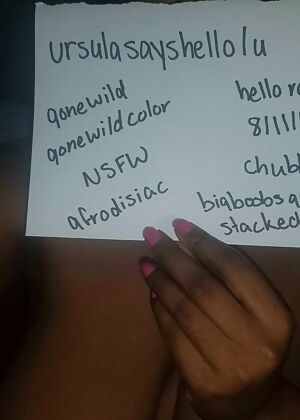 ursulasayshello/u
gonewild
gonewildcolor
NSFW
afrodisiac
hello
8/11/1
bigboobs
stacked